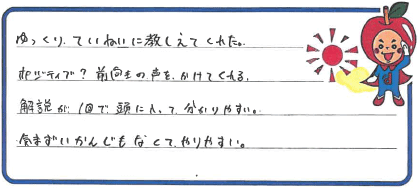 ゆっくり、ていねいに教しえてくれた。
ポジティブ？前向きの声を、かけてくれる。
解説が、1回で、頭に入って、分かりやすい。
気まずいかんじもなくて、やりやすい。